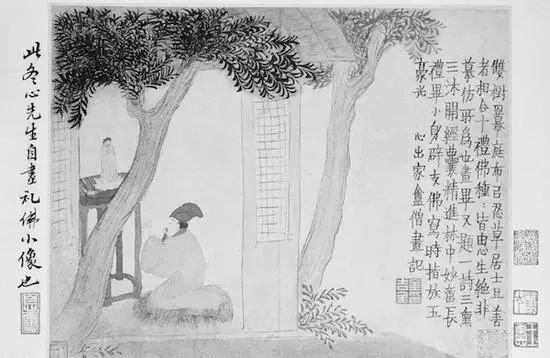 雙樹庭布忍草居士善
者相合十禮佛種種皆由心生絕非
摹仿所為也畫畢又題一詩三熏
三沐開經囊精進林中妙長
禮畢小身辟支佛寫時指放玉
豪光 心出家盦僧畫記
此冬心先生自畫礼佛小像也